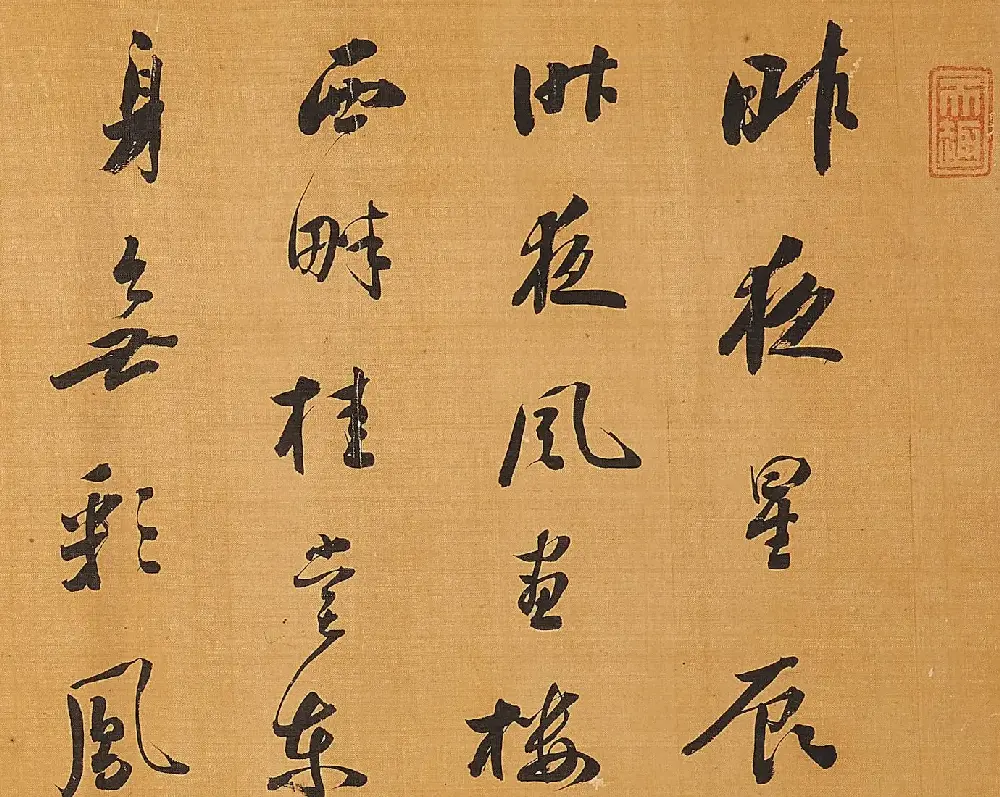 昨夜星辰
昨夜風畫樓
西畔桂堂東
身無彩鳳